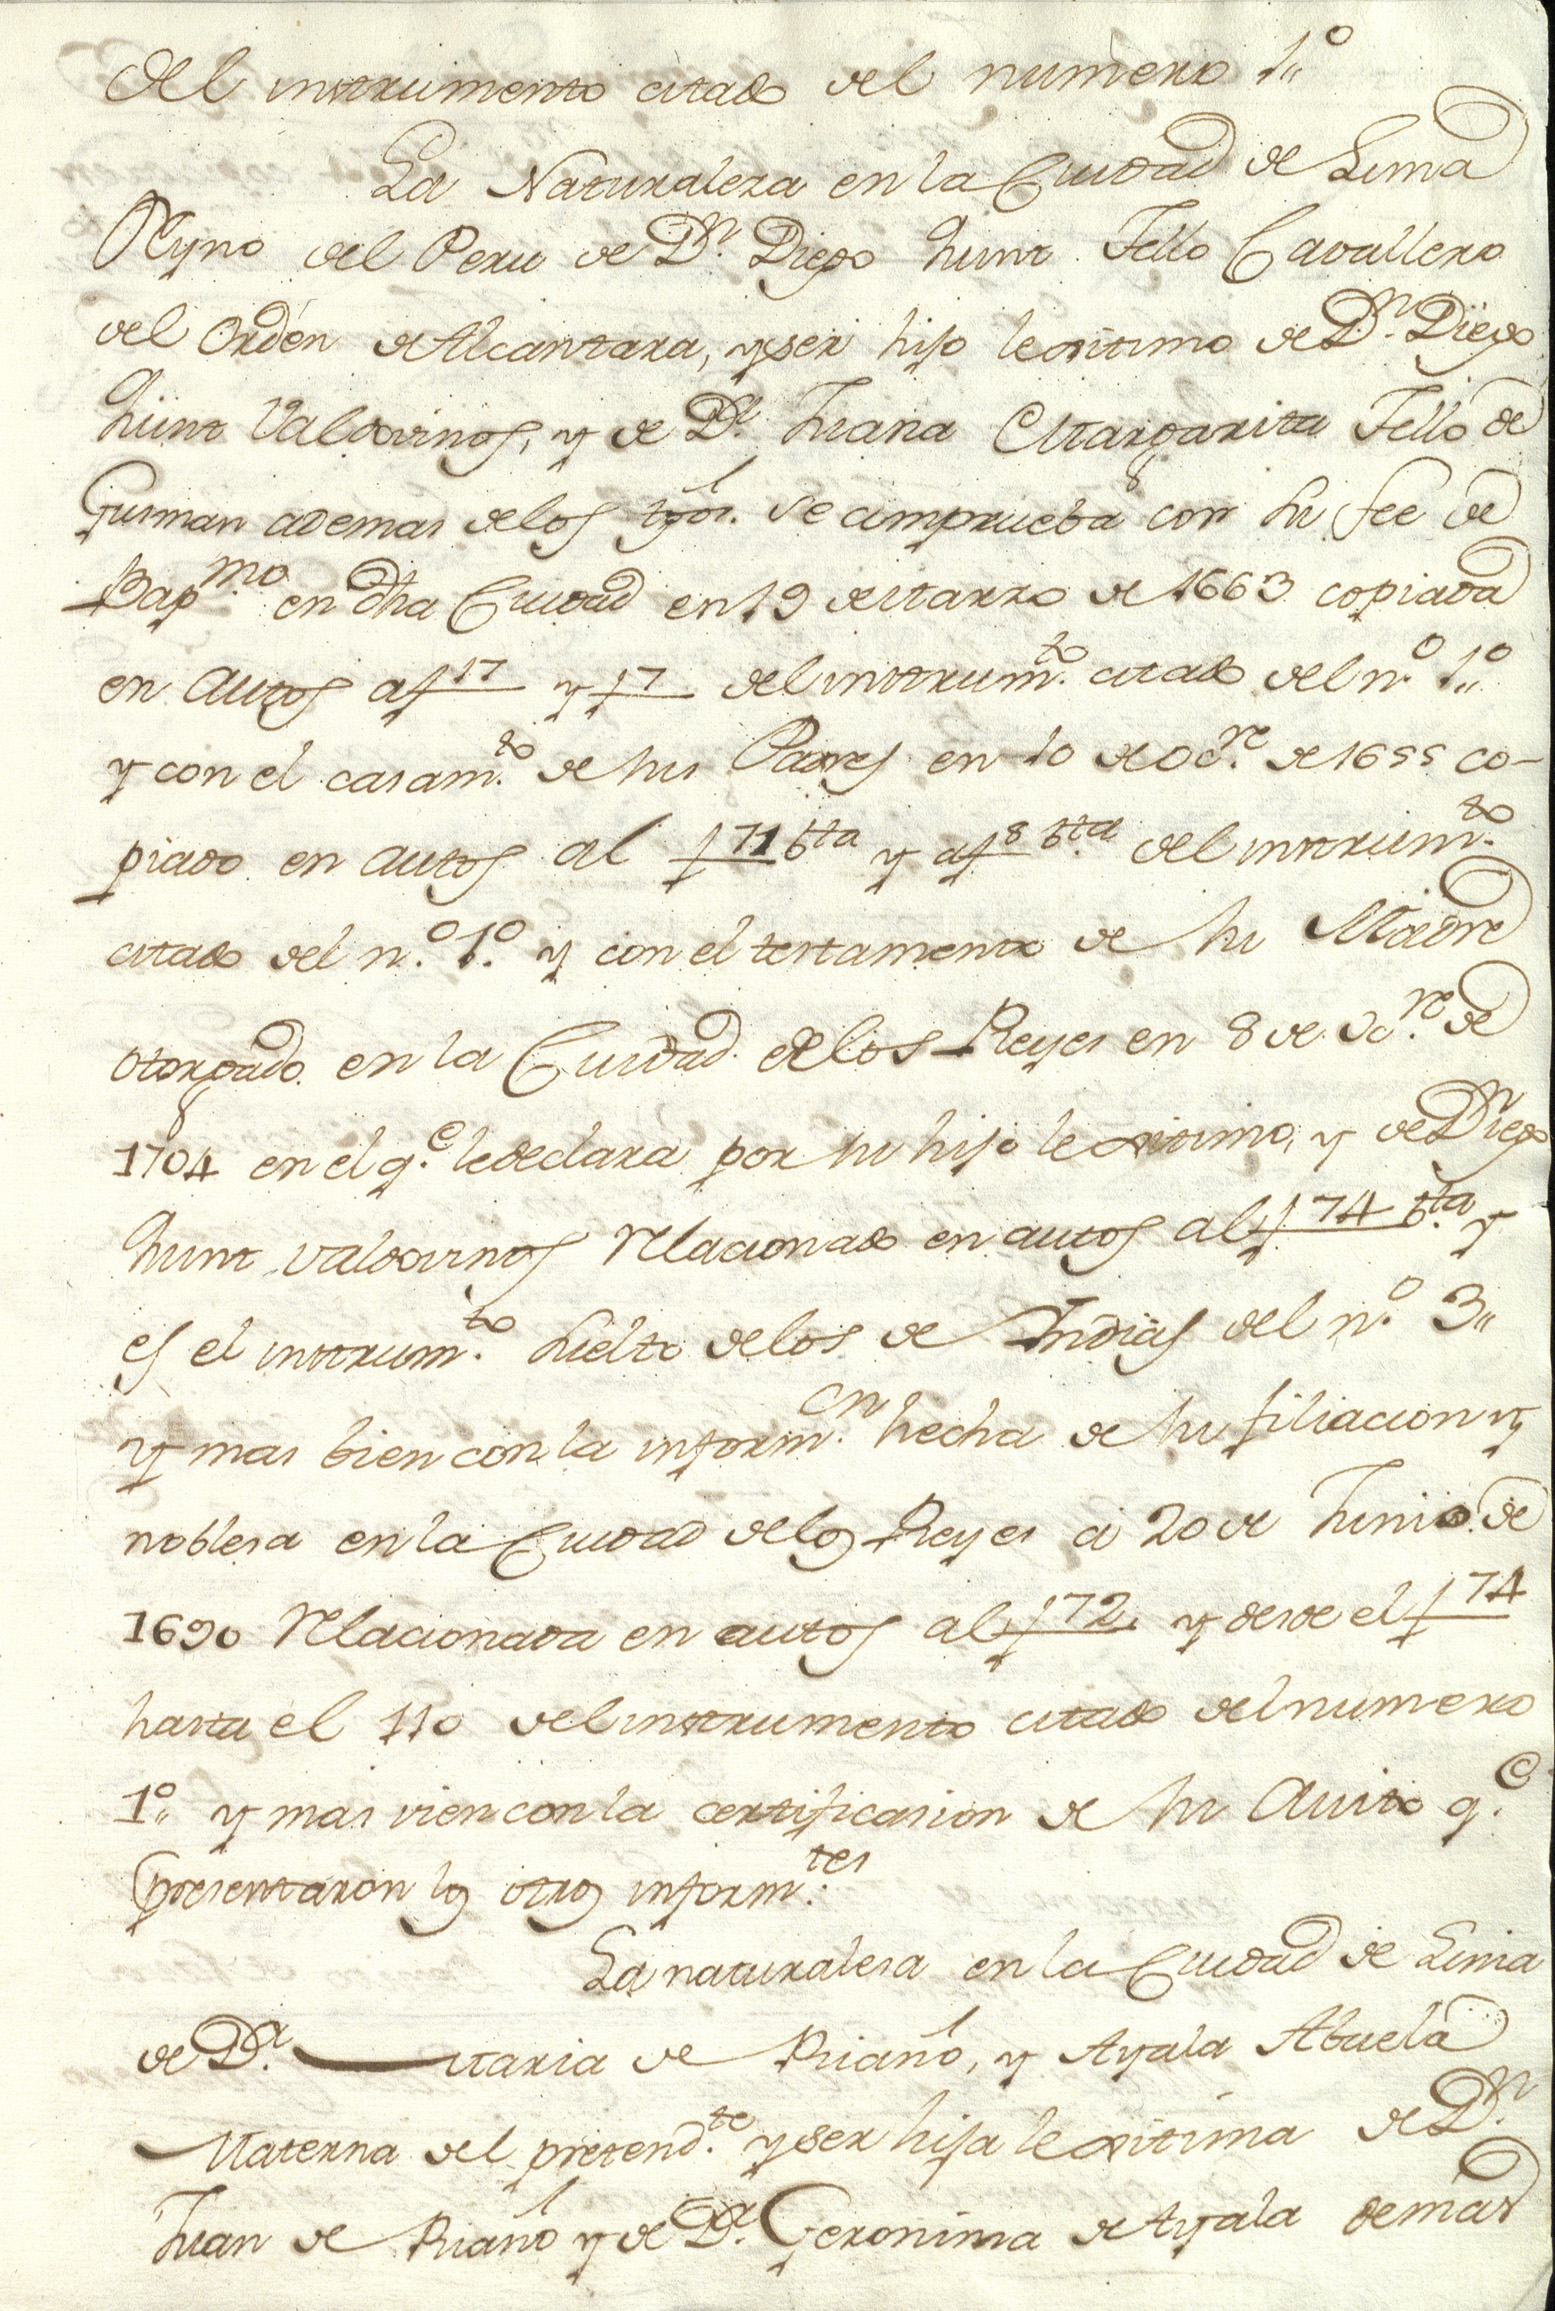 del instrumento citado del numero 1,,º
La Naturaleza en la Ciudad de Lima
Reyno del Peru de Dn. Diego Sunt Tello Cavallero
del Orden de Alcantara, y ser hijo lexitimo de Dn. Diego
Sunt Valdovinos, y de Da. Juana Margarita Tello de
Gusman ademas de los tgos. se comprueba con su fee de
Bapmo. en dha Ciudad en 19 de Marzo de 1663 copiada
en autos af 17 y f 17 del instrumto. citado del nº. 1,,º
y con el casamto. de sus Padres en 10 de Ocre. de 1655 co-
piado en autos al f 71 bta y af 8 bta. del instrumto.
citado del nº. 1º. y con el testamento de su Madre
otorgado en la Ciudad de los Reyes en 8 de Ocre. de
1704 en el qe. le declara por su hijo lexitimo, y de Dn Diego
Sunt Valdovinos relacionado en autos al f 74 bta. y
es el instrumto. suelto de los de Indias del nº. 3,,
y mas bien con la informcn. hecha de su filiacion y
noblesa en la Ciudad de los Reyes a 20 de Junio de
1690 relacionada en autos al f 72, y desde el f 74
hasta el 110 del instrumento citado del numero
1,,º y mas vien con la certificasion de su Avito qe.
presentaron los otros informtes.
La naturalesa en la Ciudad de Lima
de Da. Maria de Riaño, y Ayala Abuela
Materna del pretendte. y ser hija lexitima de Dn.
Juan de Riaño y de Da. Geronima de Ayala demas